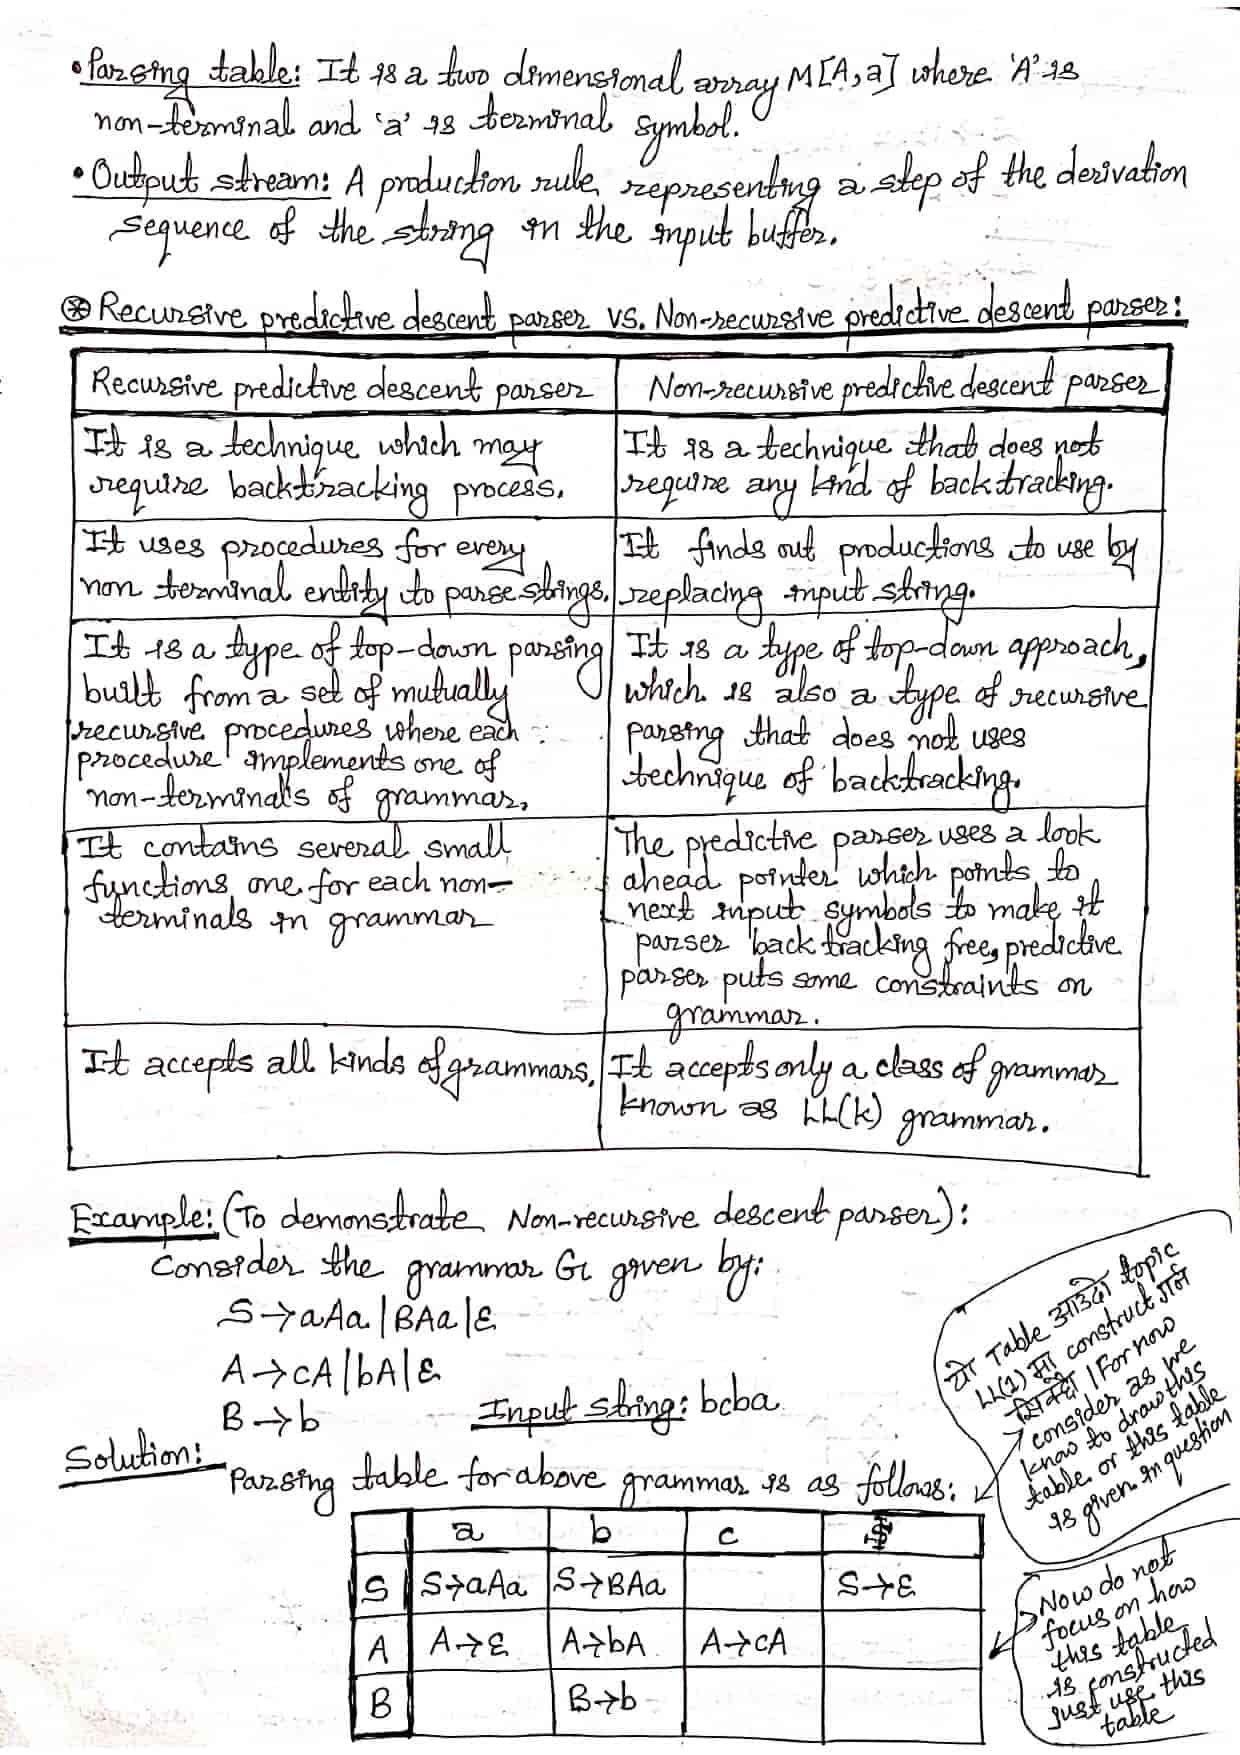 • Parsing table: It is a two dimensional array M[A, a] where 'A' is
non-terminal and 'a' is terminal symbol.
• Output stream: A production rule, representing a step of the derivation
sequence of the string in the input buffer.
⊛ Recursive predictive descent parser vs. Non-recursive predictive descent parser:
Recursive predictive descent parser
Non-recursive predictive descent parser
It is a technique which may
require backtracking process.
It is a technique that does not
require any kind of backtracking.
It uses procedures for every
non terminal entity to parse strings.
It finds out productions to use by
replacing input string.
It is a type of top-down parsing
built from a set of mutually
recursive procedures where each
procedure implements one of
non-terminal's of grammar.
It is a type of top-down approach,
which is also a type of recursive
parsing that does not uses
technique of backtracking.
It contains several small
functions one for each non-
terminals in grammar
The predictive parser uses a look
ahead pointer which points to
next input symbols to make it
parser back tracking free, predictive
parser puts some constraints on
grammar.
It accepts all kinds of grammars.
It accepts only a class of grammar
known as LL(k) grammar.
Example: (To demonstrate Non-recursive descent parser):
Consider the grammar G given by:
S→aAa|BAa|ε
A→cA|bA|ε
B→b
Input string: bcba
Solution:
Parsing table for above grammar is as follows:
a b c $
S S→aAa S→BAa S→ε
A A→ε A→bA A→cA
B B→b
यो Table आउदो topic
LL(1) मा construct गर्न
सिक्दै । For now
consider as we
know to draw this
table or this table
is given in question
Now do not
focus on how
this table
is constructed
just use this
table